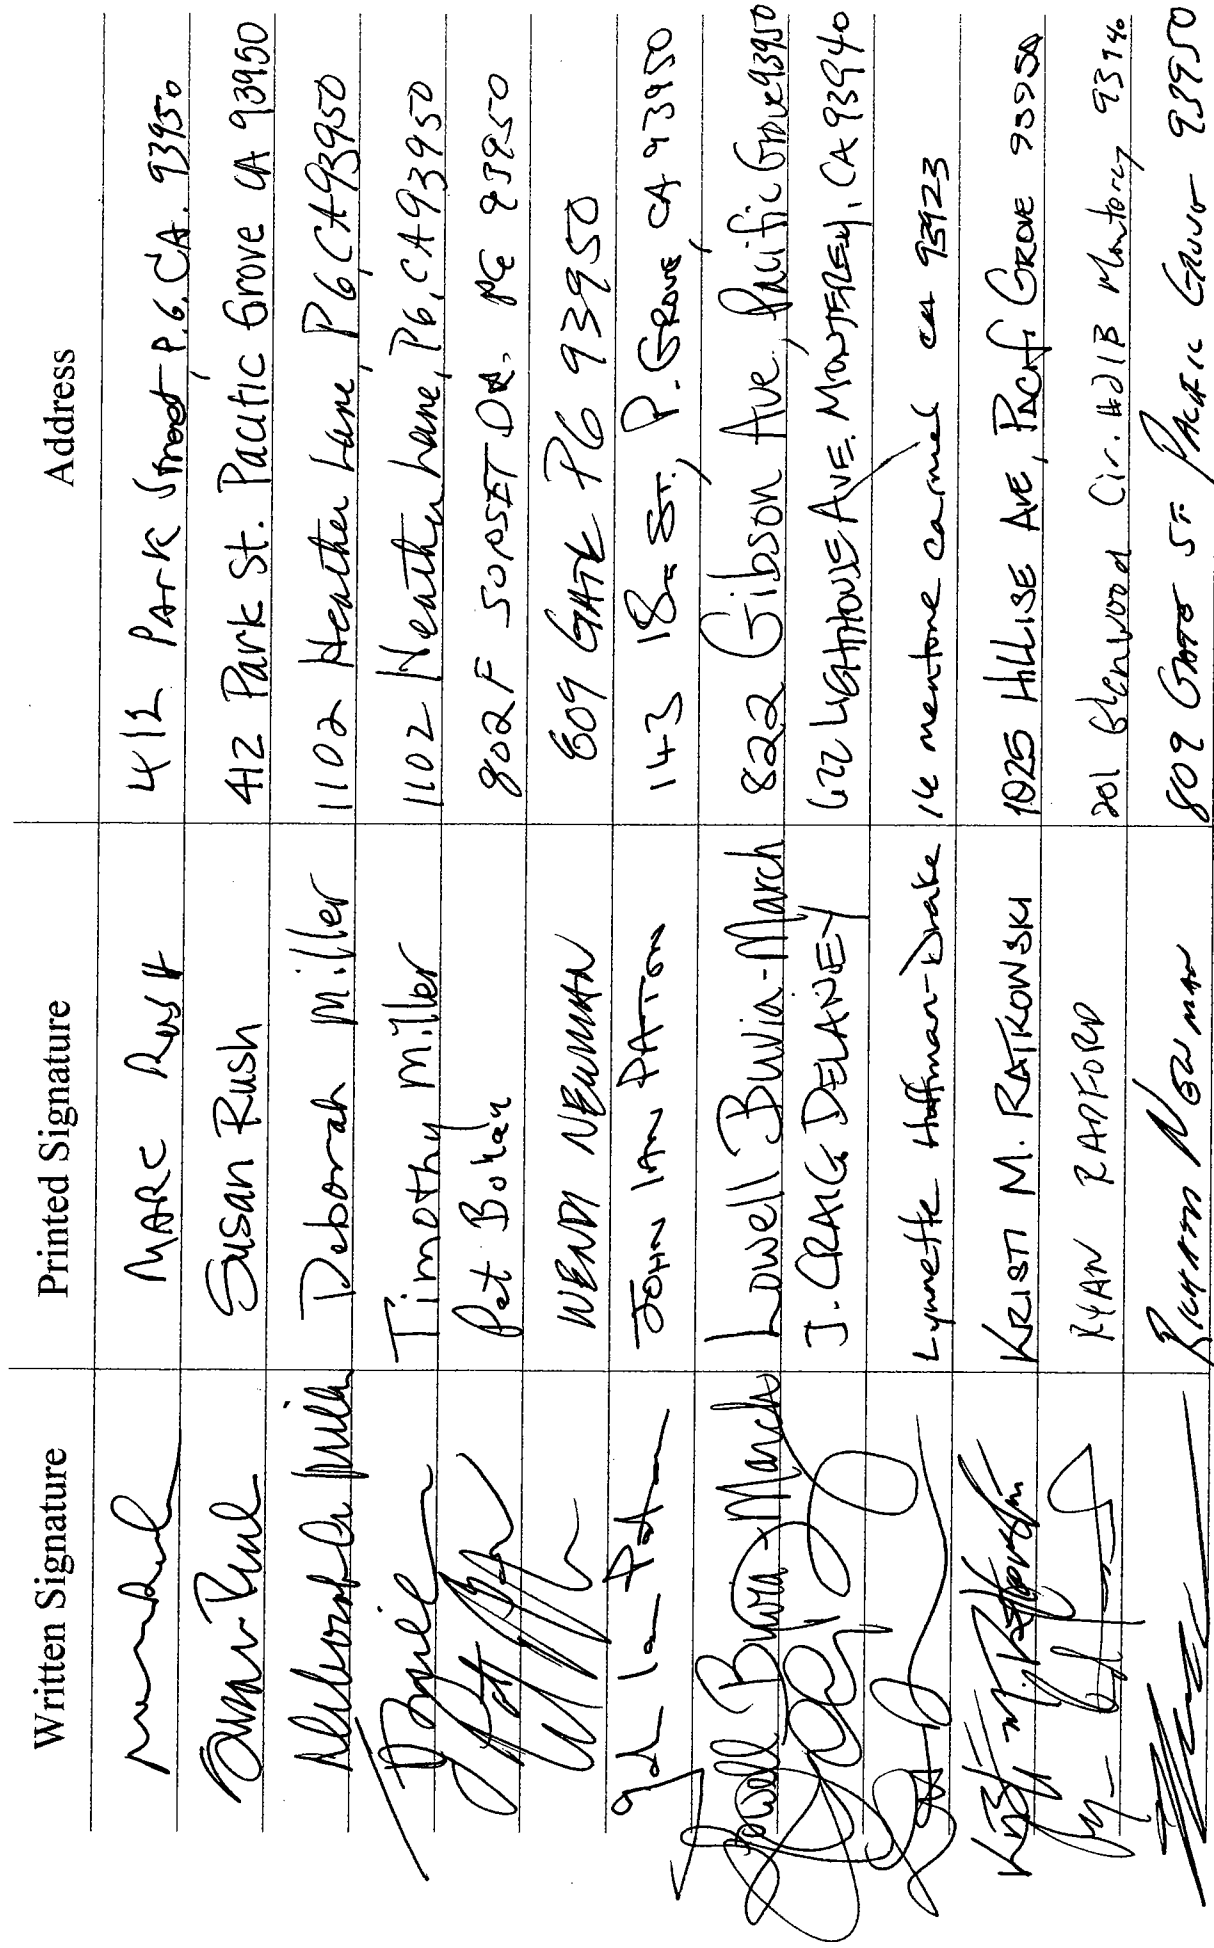 Written Signature Printed Signature Address
MARC RUSH 412 PARK Street P.G. CA. 93950
Susan Rush 412 Park St. Pacific Grove CA 93950
Deborah Miller 1102 Heather Lane, PG, CA 93950
Timothy Miller 1102 Heather Lane, PG, CA 93950
Pat Bohan 802 F SUNSET DR. PG 93950
WENDI NEWMAN 809 GATE PG 93950
John Ian Paton JOHN IAN PATON 143 18 ST., P. GROVE, CA 93950
Lowell Buvia-March Lowell Buvia-March 822 Gibson Ave, Pacific Grove 93950
J. CRAIG DELANEY 622 LIGHTHOUSE AVE. MONTEREY, CA 93940
Lynnette Huffman-Drake 14 mentone carmel ca 93923
Kristi M. Ratkowski KRISTI M. RATKOWSKI 1025 HILLISE AVE, PACIFIC GROVE 93950
RYAN RADFORD 201 Glenwood Cir. #213 Monterey 93940
RICHARD NEWMAN 809 GATE ST. PACIFIC GROVE 93950